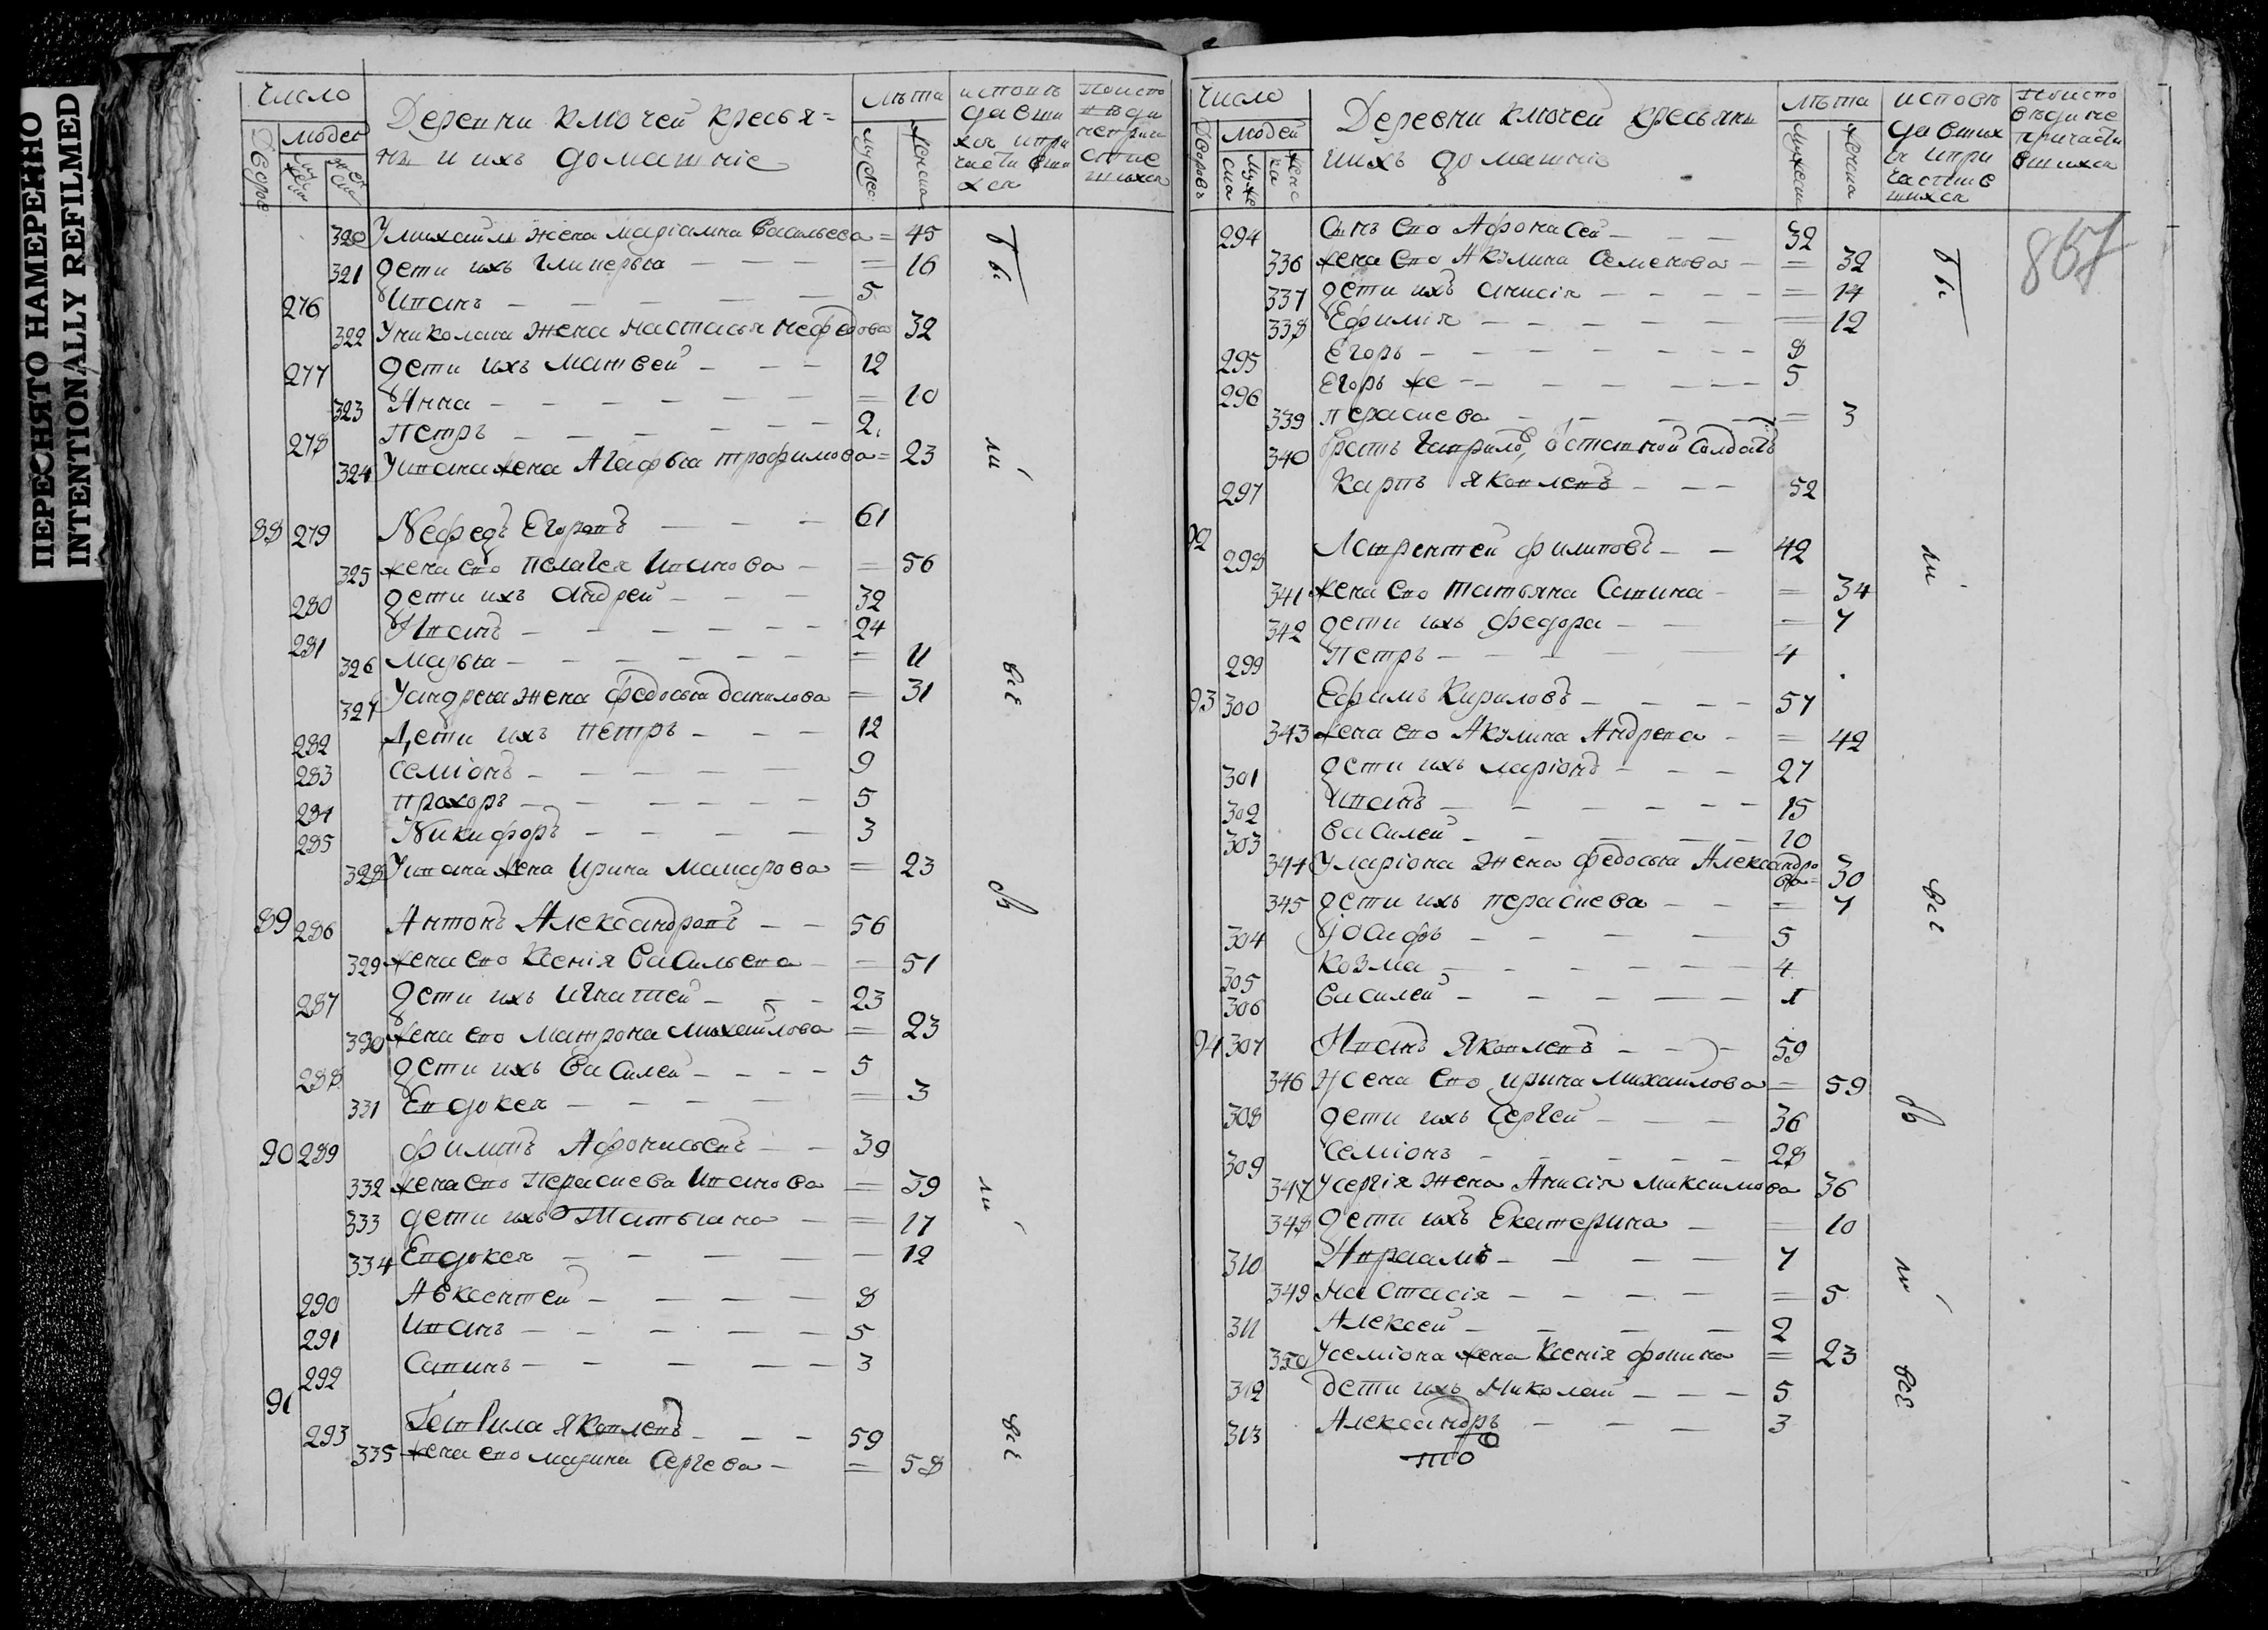 ПЕРЕСНЯТО НАМЕРЕННО
INTENTIONALLY REFILMED
Число
людей
Деревни ключей кресья=
нъ и ихъ домашніе
лѣта
320 У михаила жена маріамна Васильева = 45
321 дети ихъ Гликерья — — — = 16
276 Иванъ — — — — — 5
322 У николаи жена Настасья нефедова 32
277 дети ихъ матвей — — — 12
323 Анна — — — — — — = 10
278 Петръ — — — — — — 2
324 У ивана жена Агафья трофимова = 23
88 279 Нефедъ Егоровъ — — — 61
325 жена ево пелагея Иванова — = 56
280 дети ихъ Андрей — — — 32
281 Иванъ — — — — — — 24
326 марья — — — — — — = 11
327 У андрея жена федосья данилова = 31
282 дети ихъ петръ — — — 12
283 семіонъ — — — — — 9
284 прохоръ — — — — — — 5
285 Никифоръ — — — — 3
328 У ивана жена Ирина Макарова = 23
89 286 Антонъ Александровъ — — 56
329 жена ево Ксенія Васильева — = 51
287 дети ихъ Игнатей — — — 23
330 жена ево матрона михайлова = 23
288 дети ихъ Василей — — — — 5
331 Евдокея — — — — — = 3
90 289 филипъ Афонисьевъ — — 39
332 жена ево Перасиева Иванова = 39
333 дети ихъ Татьиана — = 17
334 Евдокея — — — — — 12
290 Авксентей — — — — 8
291 Иванъ — — — — — 5
292 Савинъ — — — — — 3
91
293 Гаврила Яковлевъ — — — 59
335 жена ево марина Сергева — = 58
вс
ли
все
въ
ли
все
Число
людей
Деревни ключей кресьянъ
и ихъ домашніе
лѣта
исповѣ
давших
ся и при
частив
шихся
по испо
вѣди не
причасти
вшихся
867
294 Сынъ ево Афонасей — — — 32
336 жена ево Акулина Семенова — = 32
337 дети ихъ анисія — — — — = 14
338 Ефимія — — — — — — = 12
295 Егоръ — — — — — — — 8
296 Егоръ же — — — — — — 5
339 перасиева — — — — — = 3
340 братъ Гаврило, отставной солдатъ
297 Карпъ Яковлевъ — — — 52
92
298 Лаврентей филиповъ — — 42
341 жена ево татьяна Савина — = 34
342 дети ихъ федора — — — 7
299 Петръ — — — — — 4
93 300 Ефимъ Кириловъ — — — — 57
343 жена ево Акулина Андрева — = 42
301 дети ихъ ларіонъ — — — 27
302 Иванъ — — — — — — 15
303 василей — — — — — 10
344 У ларіона жена федосья Александро
ва = 30
345 дети ихъ перасиева — — = 7
304 Іоасифъ — — — — 5
305 козма — — — — — — 4
306 василей — — — — — 1
94 307 Иванъ Яковлевъ — — — 59
346 жена ево ирина михаилова = 59
308 дети ихъ Сергей — — — 36
309 семіонъ — — — — — 28
347 У сергія жена Анисія максимова 36
348 дети ихъ Екатерина — = 10
310 Авраамъ — — — — 7
349 на Стасія — — — — = 5
311 Алексей — — — — — 2
350 У семіона жена Ксенія фомина = 23
312 дети ихъ Николай — — — 5
313 Александръ — — — 3
вс
ли
все
въ
ли
все